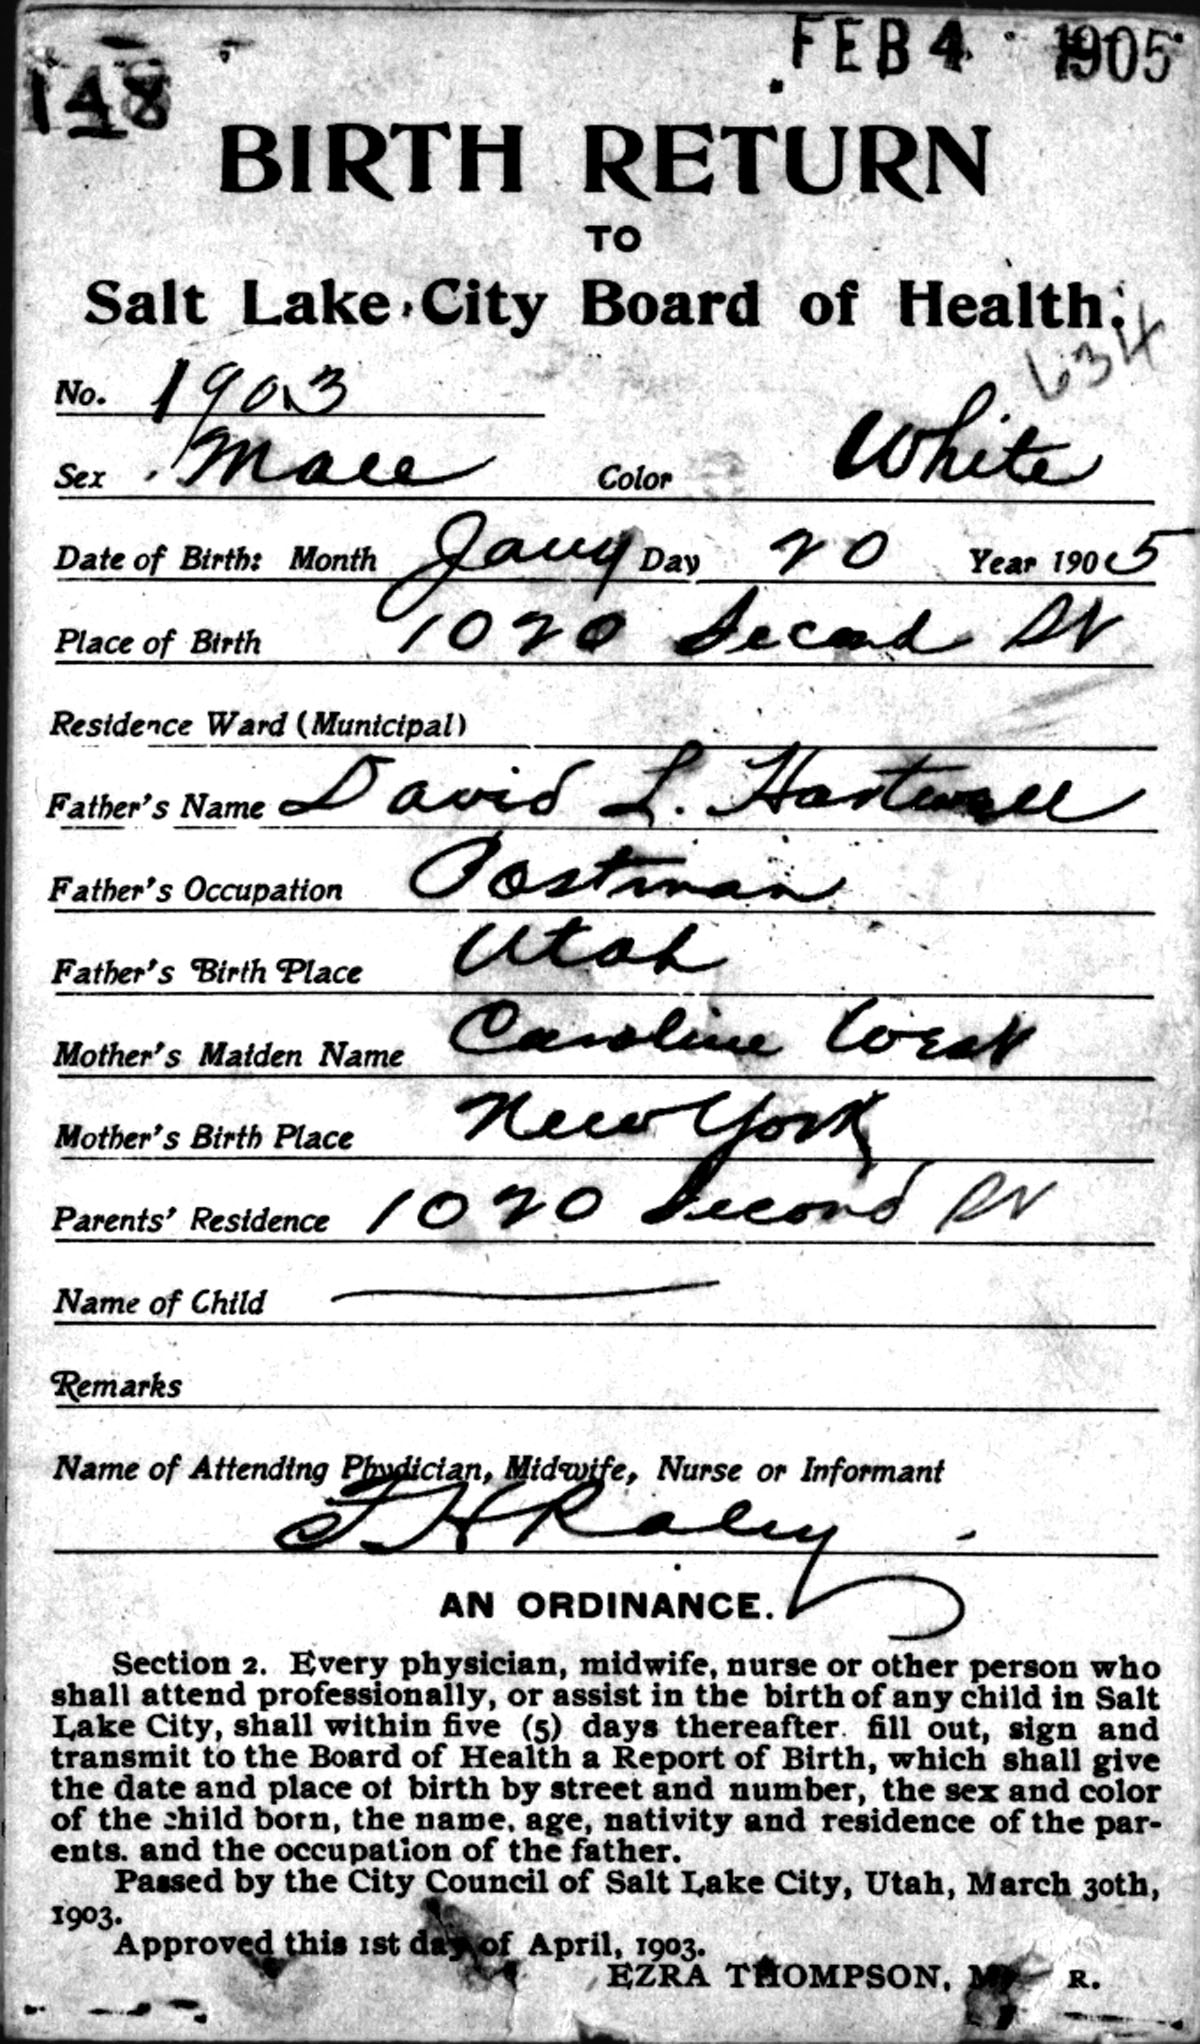 FEB 4 1905
148
BIRTH RETURN
TO
Salt Lake City Board of Health.
634
No. 1903
Sex Male Color White
Date of Birth: Month Jany Day 20 Year 1905
Place of Birth 1020 Second St
Residence Ward (Municipal)
Father's Name David L. Hartwell
Father's Occupation Postman
Father's Birth Place Utah
Mother's Maiden Name Caroline West
Mother's Birth Place New York
Parents' Residence 1020 Second St
Name of Child
Remarks
Name of Attending Physician, Midwife, Nurse or Informant
H Raley
AN ORDINANCE.
Section 2. Every physician, midwife, nurse or other person who
shall attend professionally, or assist in the birth of any child in Salt
Lake City, shall within five (5) days thereafter fill out, sign and
transmit to the Board of Health a Report of Birth, which shall give
the date and place of birth by street and number, the sex and color
of the child born, the name, age, nativity and residence of the par-
ents. and the occupation of the father.
Passed by the City Council of Salt Lake City, Utah, March 30th,
1903.
Approved this 1st day of April, 1903.
EZRA THOMPSON, R.